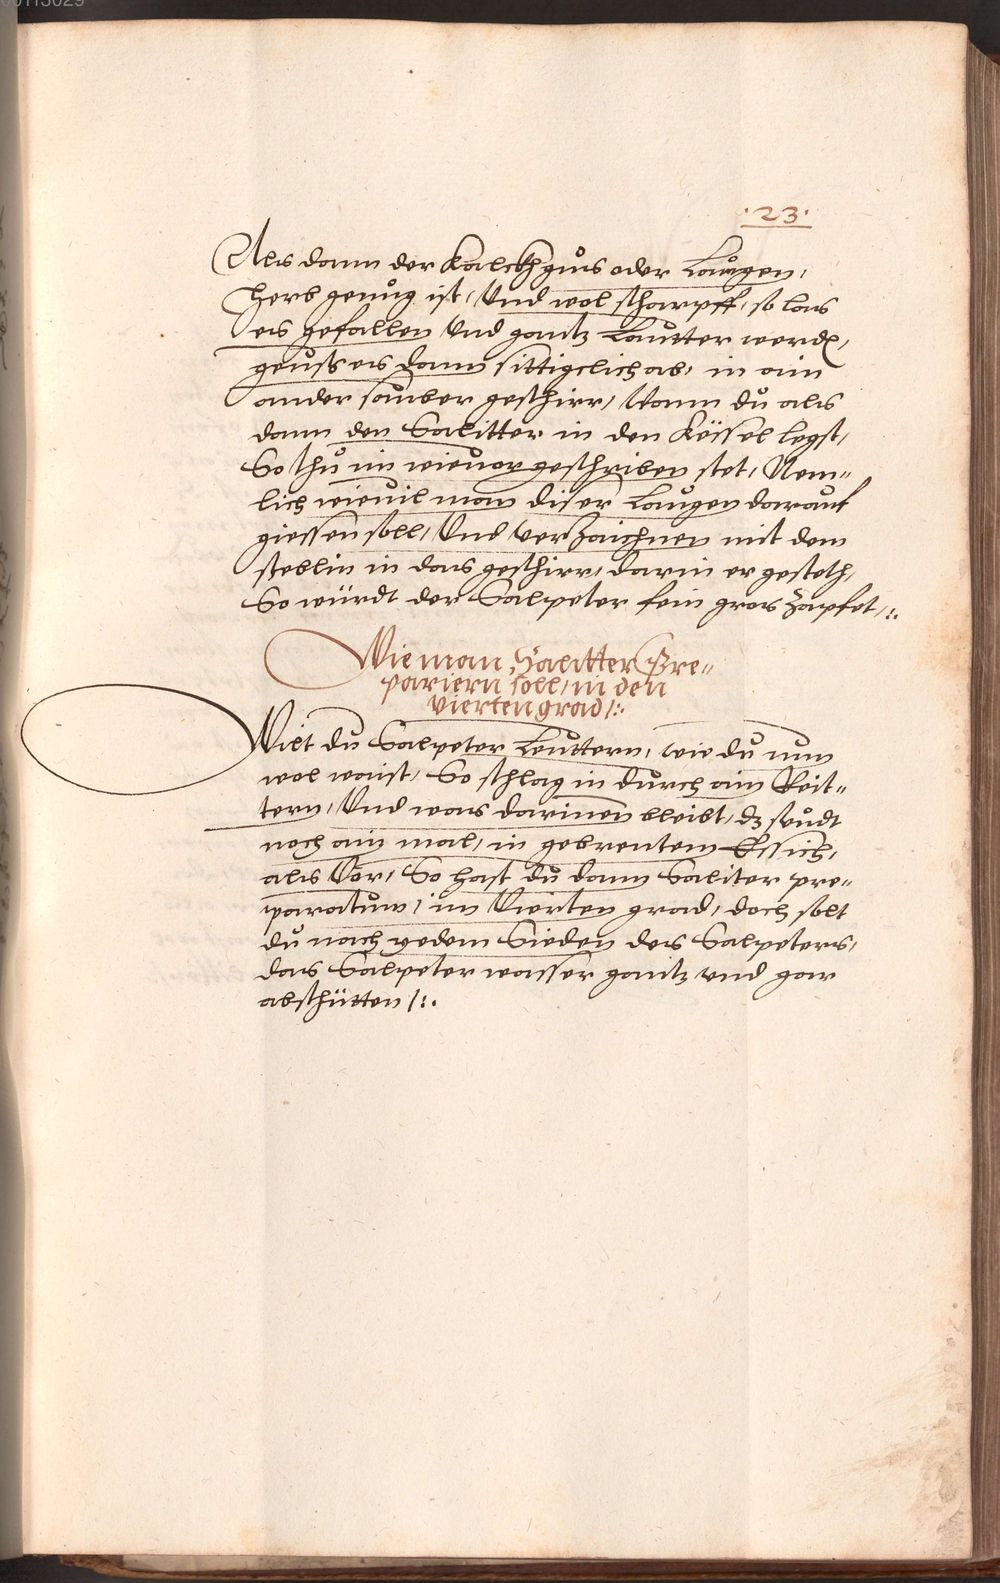 00113029
·23·
Als dann der Kalckhguß oder Laugen,
herb genug ist, Und wol scharpff, so las
es gefallen Und gantz Lautter werdn,
geuß es dann sittigclich ab, in ain
ander sauber geschirr, Wann du als
dann den Salitter in den Kessel legst,
So thu im wieuor geschriben stet, Nem„
lich wieuil man diser Laugen darauf
giessen soll, Und verzaichnen mit dem
steblin in das geschirr, darin er gesteth,
So würdt der Salpeter fein gros Zapfet,/:.
Wie man Salitter Pre„
pariern soll, in den
vierten grad /:.
Wilt du Salpeter Leuttern, wie du nun
wol waist, So schlag in durch ain Reit„
tern, Und was darinen bleibt, dz seudt
noch ain mal, in gebrentem Essich,
als Vor, So hast du dann Saliter pre„
paratum, im Vierten grad, doch solt
du nach yedem Sieden des Salpeters,
das Salpeter wasser gantz und gar
abschütten /:.